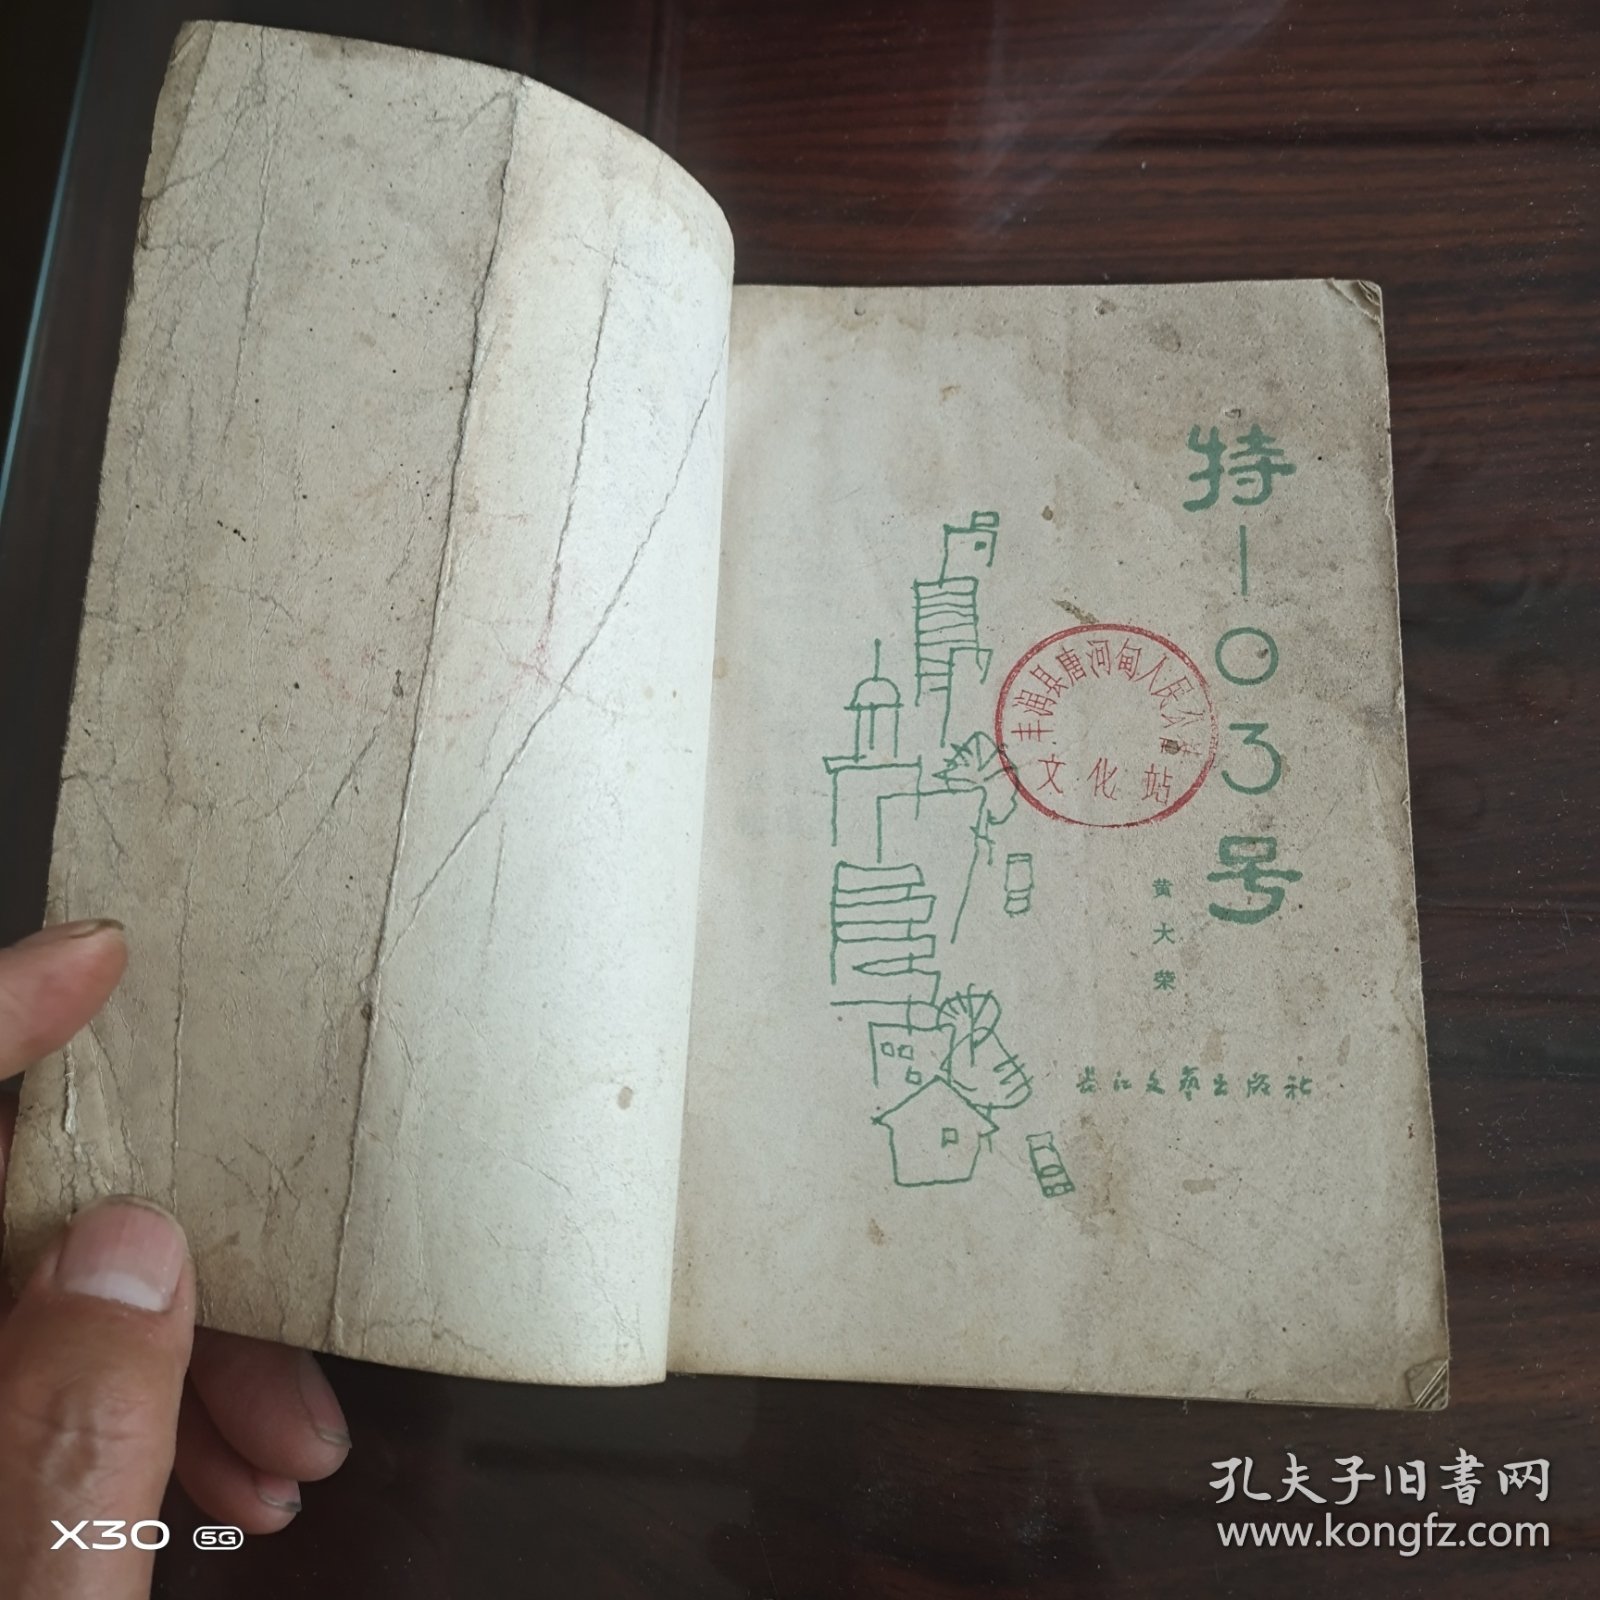 特103号
黄大荣
长江文艺出版社
丰润县唐河甸人民公社
文化站
孔夫子旧书网
www.kongfz.com
X30 5G